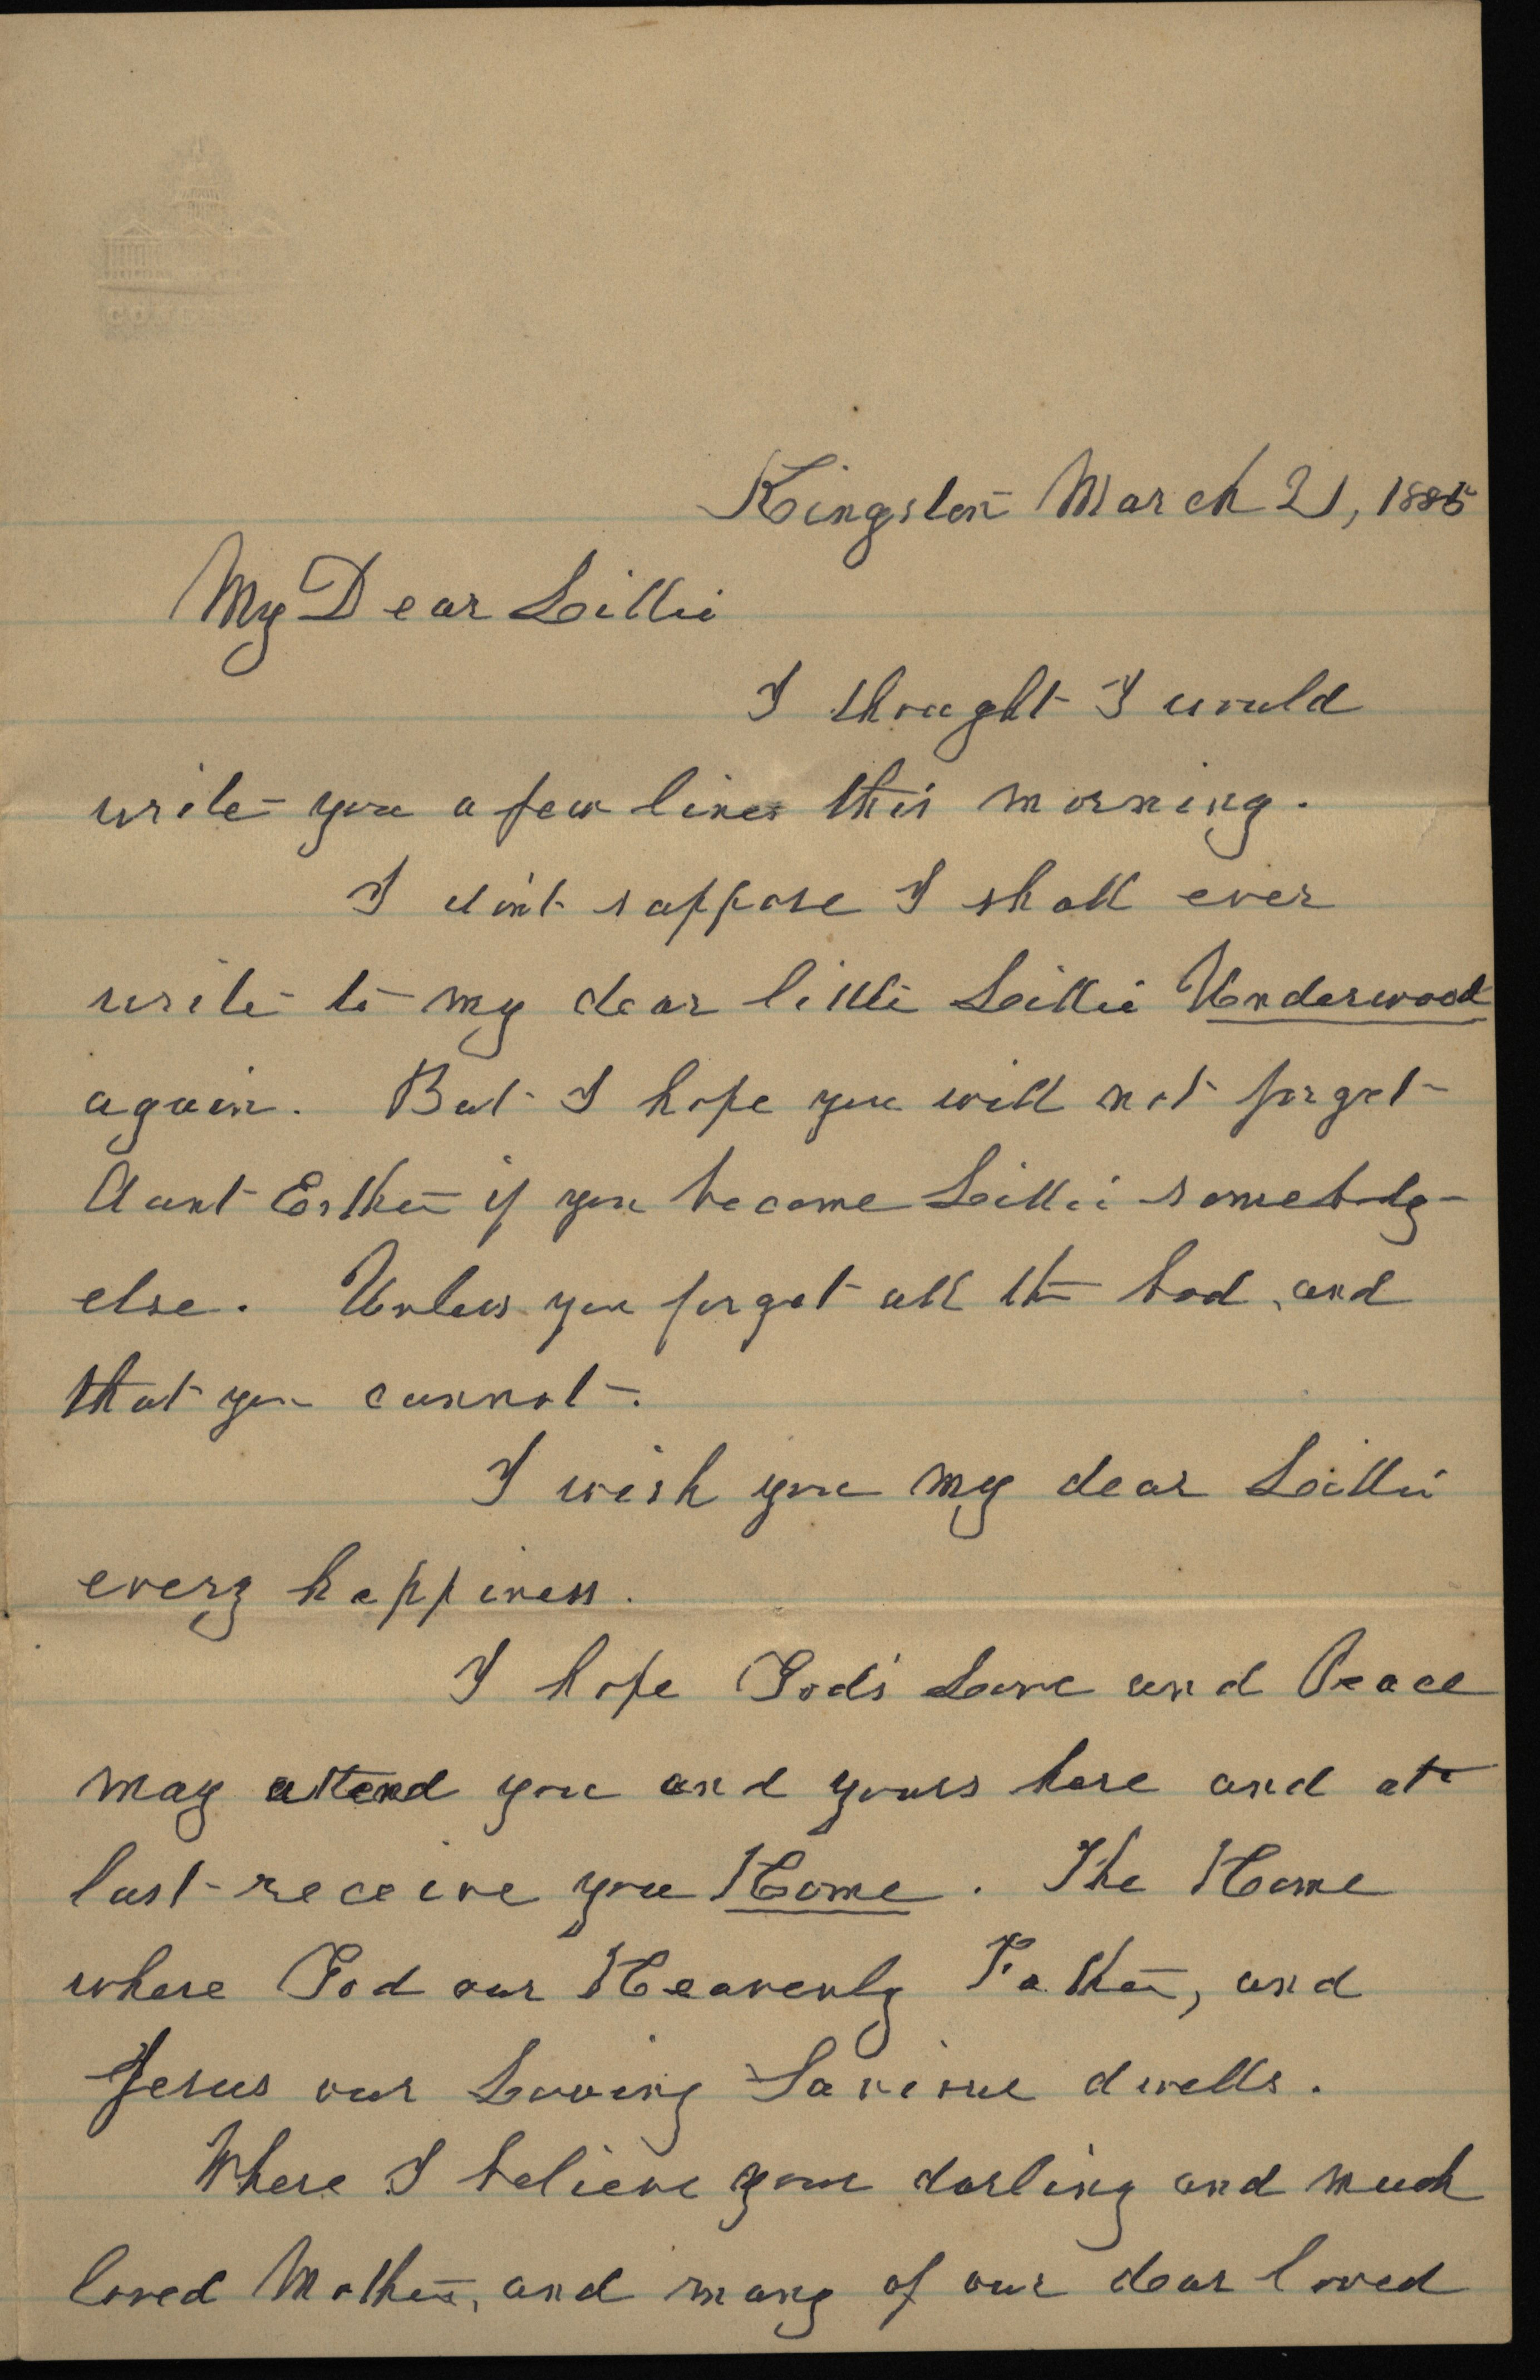 Kingston March 21, 1885
My Dear Lillie
I thought I would
write you a few lines this morning.
I don't suppose I shall ever
write to my dear little Lillie Underwood
again. But I hope you will not forget
Aunt Esther if you become Lillie somebody
else. Unless you forget all the bad, and
that you cannot.
I wish you my dear Lillie
every happiness.
I hope God's Love and Peace
may attend you and yours here and at
last receive you Home. The Home
where God our Heavenly Father, and
Jesus our Loving Saviour dwells.
Where I believe your darling and much
loved Mother, and many of our dear loved